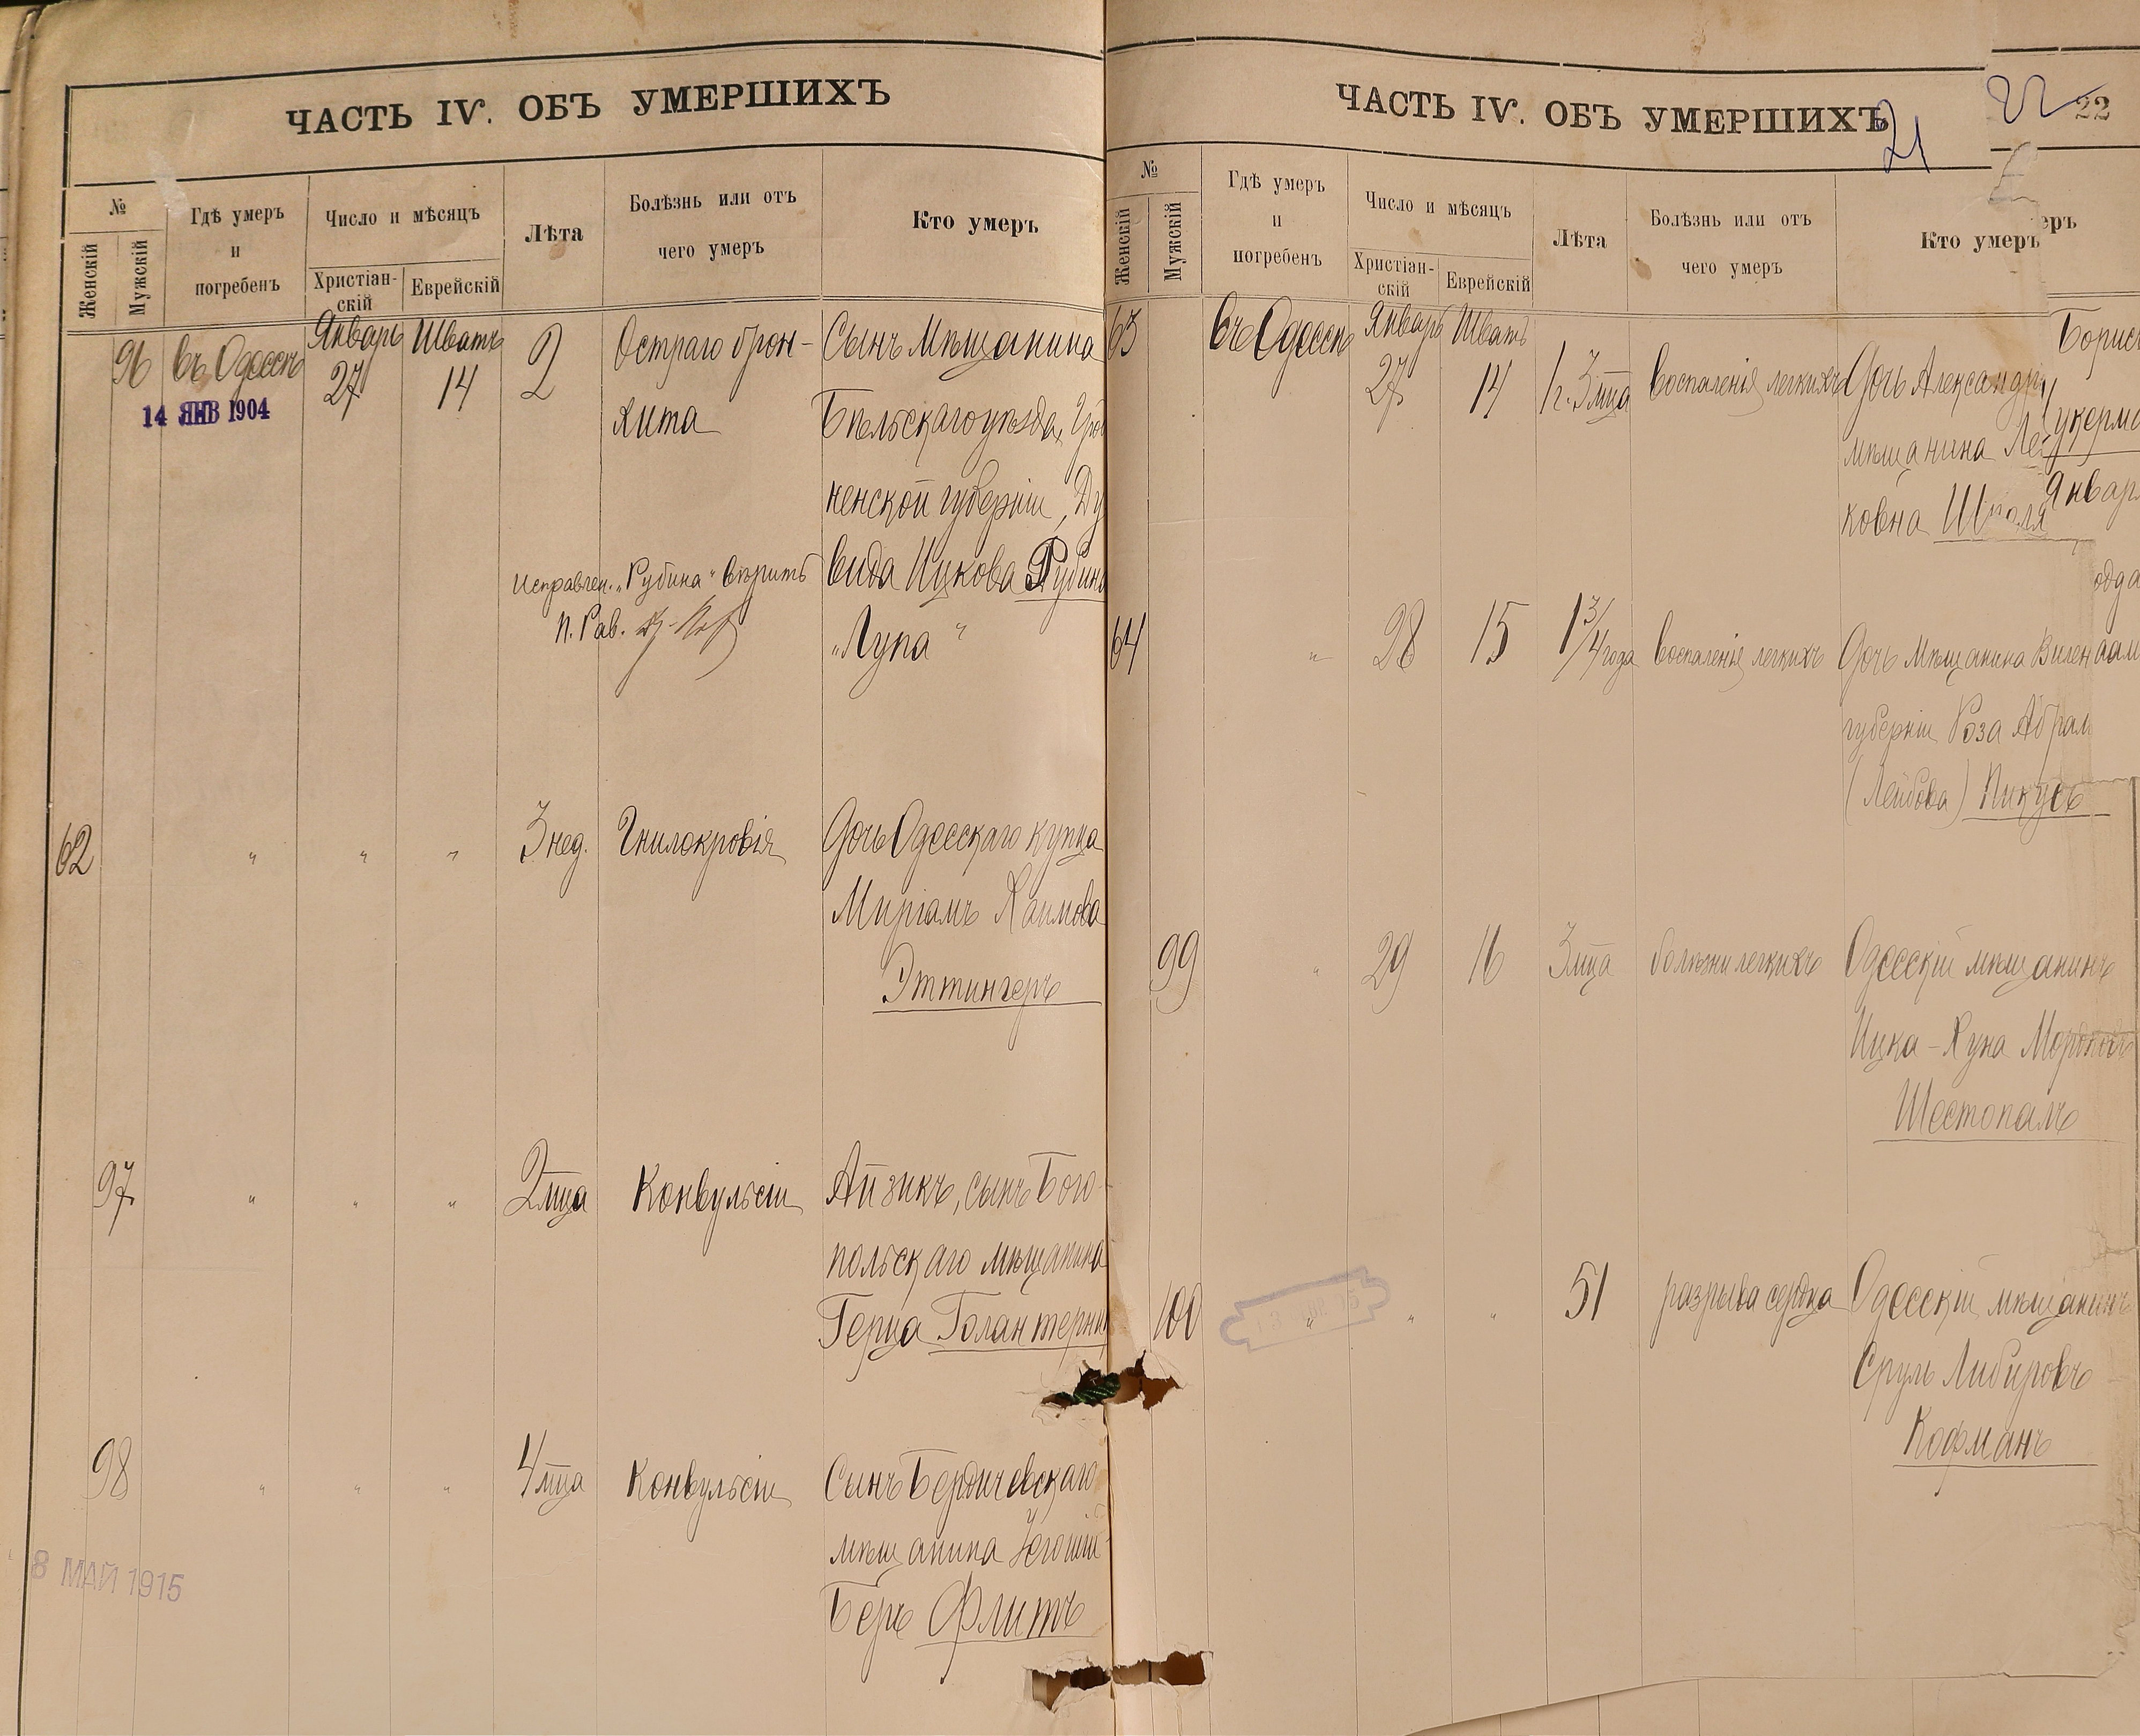 ЧАСТЬ IV. ОБЪ УМЕРШИХЪ
№
Женскій
Мужскій
Гдѣ умеръ
и
погребенъ
Число и мѣсяцъ
Христіан-
скій
Еврейскій
Лѣта
Болѣзнь или отъ
чего умеръ
Кто умеръ
96 въ Одессѣ Январь 27 Шватъ 14 2 Остраго брон-
хита
14 ЯНВ 1904
Сынъ Мѣщанина
Бѣльскаго уѣзда, Грод
ненской губерніи, Ду
вида Ицкова Рубина
„Лупа“
Исправлен. „Рубина“ вѣритъ
п. Рав.
62 „ „ „ 3 нед. Гнилокровія Дочь Одесскаго купца
Миріамъ Хаимова
Эттингеръ
97 „ „ „ 2 мца Конвульсіи Айзикъ, сынъ Бого-
польскаго мѣщанина
Герца Голантерни
98 „ „ „ 4 мца Конвульсіи Сынъ Бердичевскаго
мѣщанина
Беръ Флитъ
8 МАЙ 1915
ЧАСТЬ IV. ОБЪ УМЕРШИХЪ
21
22
22
№
Женскій
Мужскій
Гдѣ умеръ
и
погребенъ
Число и мѣсяцъ
Христіан-
скій
Еврейскій
Лѣта
Болѣзнь или отъ
чего умеръ
Кто умеръ
еръ
63 въ Одессѣ Январь 27 Шватъ 14 1 г. 3 мца воспаленія легкихъ Дочь Александр
мѣщанина Ле
ковна
Борис
укерма
Январ
64 „ 28 15 1 3/4 года воспаленія легкихъ Дочь Мѣщанина Вилен
губерніи Роза Абрам
(Лейбова) Пикусъ
99 „ 29 16 3 мца болѣзни легкихъ Одесскій мѣщанинъ
Ицка-Хуна Мордков
Шестопалъ
100 „ „ „ 51 разрыва сердца Одесскій мѣщанинъ
Сруль Либировъ
Кофманъ